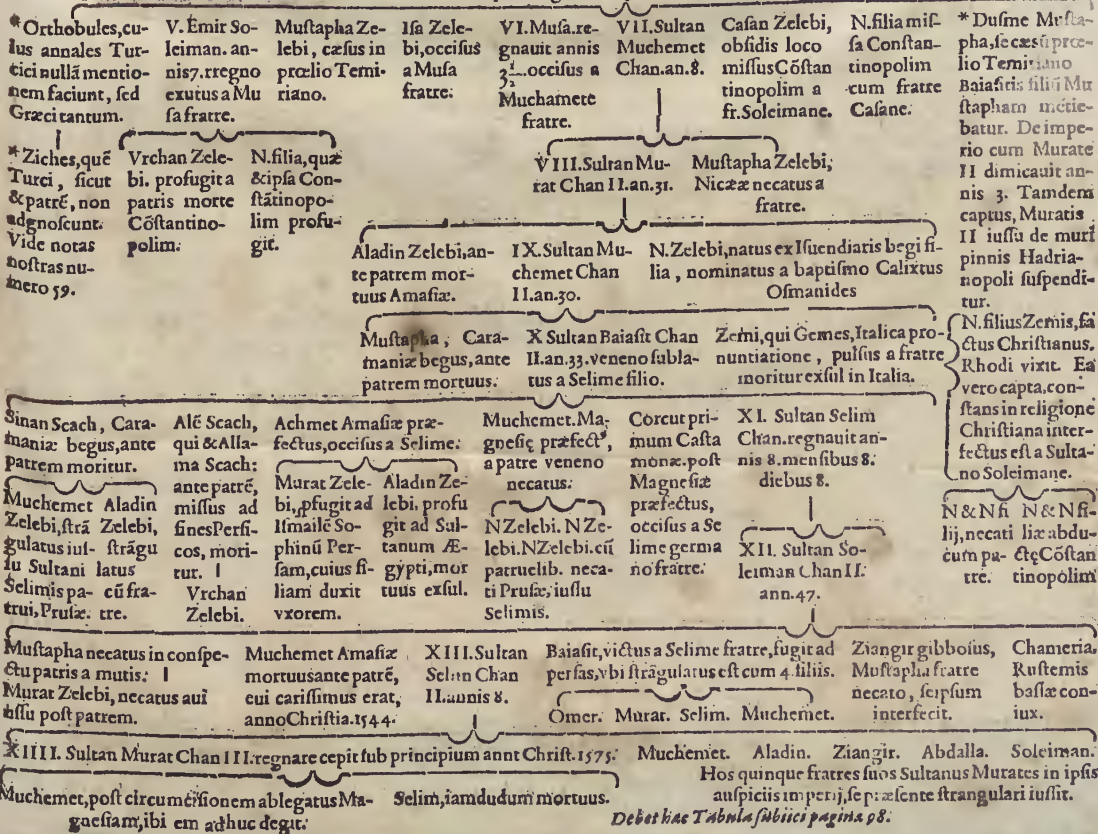 *Orthobules,cu-
ius annales Tur-
tici nullā mentio-
nem faciunt, sed
Græci tantum.
V. Emir So-
leiman. an-
nis 7. rregno
exutus a Mu
sa fratre.
Mustapha Ze-
lebi, cæsus in
prœlio Temi-
riano.
Isa Zele-
bi, occisus
a Musa
fratre.
VI. Musa. re-
gnauit annis
3 1/2. occisus a
Muchamete
fratre.
VII. Sultan
Muchemet
Chan. an. 8.
Casan Zelebi,
obsidis loco
missus Cōstan
tinopolim a
fr. Soleimane.
N. filia mis-
sa Constan-
tinopolim
cum fratre
Casane.
* Dusme Musta-
pha, se cæsū prœ-
lio Temiriano
Baiasitis filiū Mu
stapham mētie-
batur. De impe-
rio cum Murate
II dimicauit an-
nis 3. Tamdem
captus, Muratis
II iussu de muri
pinnis Hadria-
nopoli suspendi-
tur.
*Ziches, quē
Turci, sicut
& patrē, non
adgnoscunt.
Vide notas
nostras nu-
mero 59.
Vrchan Zele-
bi. profugit a
patris morte
Cōstantino-
polim.
N. filia, quæ
& ipsa Con-
stātinopo-
lim profu-
git.
VIII. Sultan Mu-
rat Chan II. an. 31.
Mustapha Zelebi,
Nicææ necatus a
fratre.
Aladin Zelebi, an-
te patrem mor-
tuus Amasiæ.
IX. Sultan Mu-
chemet Chan
II. an. 30.
N. Zelebi, natus ex Isuendiaris begi fi-
lia, nominatus a baptismo Calixtus
Osmanides
Mustapha, Cara-
maniæ begus, ante
patrem mortuus.
X Sultan Baiasit Chan
II. an. 33. veneno subla-
tus a Selime filio.
Zemi, qui Gemes, Italica pro-
nuntiatione, pulsus a fratre
moritur exsul in Italia.
N. filius Zemis, fa
ctus Christianus.
Rhodi vixit. Ea
vero capta, con-
stans in religione
Christiana inter-
fectus est a Sulta-
no Soleimane.
N & N fi
lij, necati
cum pa-
tre.
N & N fi
liæ abdu-
ctę Cōstan
tinopolim
Sinan Scach, Cara-
maniæ begus, ante
patrem moritur.
Alē Scach,
qui & Alla-
ma Scach:
ante patrē,
missus ad
fines Persi-
cos, mori-
tur. |
Vrchan
Zelebi.
Achmet Amasiæ præ-
fectus, occisus a Selime.
Muchemet. Ma-
gnesię præfect9,
a patre veneno
necatus.
Corcut pri-
mum Casta
monæ. post
Magnesiæ
præfectus,
occisus a Se
lime germa
no fratre.
XI. Sultan Selim
Chan. regnauit an-
nis 8. mensibus 8.
diebus 8.
Muchemet
Zelebi, strā
gulatus ius-
su Sultani
Selimis pa-
trui, Prusæ.
Aladin
Zelebi,
strāgu
latus
cū fra-
tre.
Murat Zele-
bi, pfugit ad
Ismailē So-
phinū Per-
sam, cuius fi-
liam duxit
vxorem.
Aladin Ze-
lebi. profu
git ad Sul-
tanum Æ-
gypti, mor
tuus exsul.
N Zelebi. N Ze-
lebi. N Zelebi. cū
patruelib. neca-
ti Prusæ, iussu
Selimis.
XII. Sultan So-
leiman Chan II.
ann. 47.
Mustapha necatus in conspe-
ctu patris a mutis. |
Murat Zelebi, necatus aui
iussu post patrem.
Muchemet Amasiæ
mortuus ante patrē,
cui carissimus erat,
anno Christia. 1544.
XIII. Sultan
Selim Chan
II. annis 8.
Baiasit, victus a Selime fratre, fugit ad
persas, vbi strāgulatus est cum 4. filiis.
Omer. Murat. Selim. Muchemet.
Ziangir gibbosus,
Mustapha fratre
necato, seipsum
interfecit.
Chameria,
Rustemis
bassæ con-
iux.
XIIII. Sultan Murat Chan III. regnare cepit sub principium annt Christ. 1575. Muchemet. Aladin. Ziangir. Abdalla. Soleiman.
Hos quinque fratres suos Sultanus Murates in ipsis
auspiciis imperij, se præsente strangulari iussit.
Muchemet, post circumcisionem ablegatus Ma-
gnesiam, ibi em adhuc degit.
Selim, iamdudum mortuus.
Debet hæc Tabula subiici pagina 98.